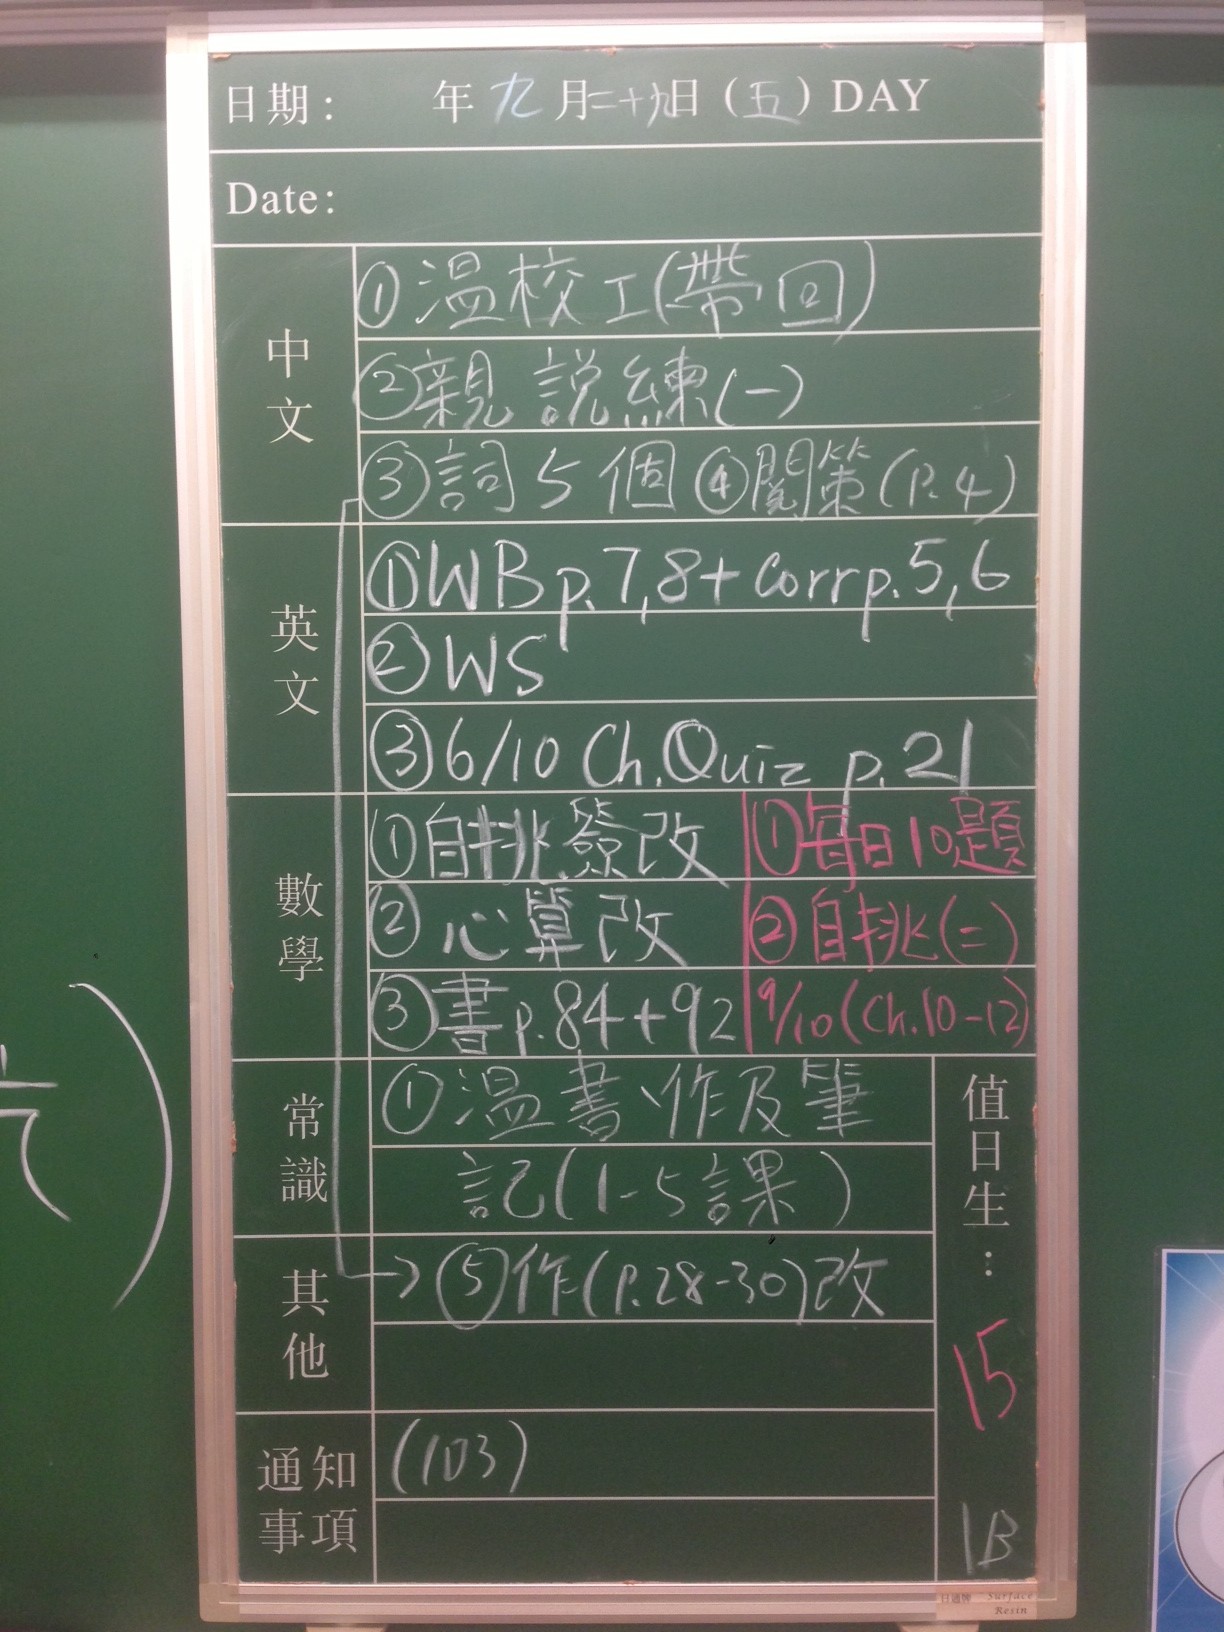 日期： 年 九 月二十九日（五）DAY
Date:
中文
①温校工(帶回)
②親說練(一)
③詞5個 ④閱策(P.4)
英文
①WB p.7,8+ corr p.5,6
②WS
③6/10 Ch.Quiz p.21
數學
①自挑簽改 ①每日10題
②心算改 ②自挑(二)
③書p.84+92 9/10(Ch.10-12)
常識
①溫書、作及筆
記(1-5課)
其他
→⑤作(P.28-30)改
通知事項
(103)
值日生：
15
1B
日通牌 Surface
Resin